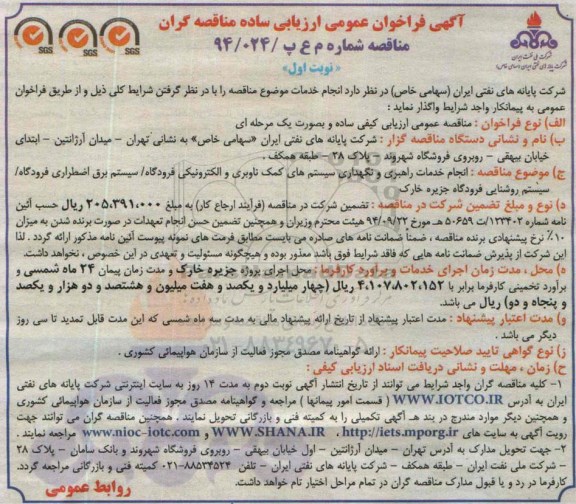 آگهی فراخوان عمومی ارزیابی ساده مناقصه گران
مناقصه شماره م ع پ /۹۴/۰۲۴
«نوبت اول»
SGS SGS SGS
شرکت ملی نفت ایران
شرکت پایانه های نفتی ایران (سهامی خاص)
شرکت پایانه های نفتی ایران (سهامی خاص) در نظر دارد انجام خدمات موضوع مناقصه را با در نظر گرفتن شرایط کلی ذیل و از طریق فراخوان
عمومی به پیمانکار واجد شرایط واگذار نماید :
الف) نوع فراخوان : مناقصه عمومی ارزیابی کیفی ساده و بصورت یک مرحله ای
ب) نام و نشانی دستگاه مناقصه گزار : شرکت پایانه های نفتی ایران «سهامی خاص» به نشانی تهران - میدان آرژانتین - ابتدای
خیابان بیهقی - روبروی فروشگاه شهروند - پلاک ۲۸ - طبقه همکف .
ج) موضوع مناقصه : انجام خدمات راهبری و نگهداری سیستم های کمک ناوبری و الکترونیکی فرودگاه/ سیستم برق اضطراری فرودگاه/
سیستم روشنایی فرودگاه جزیره خارک
د) نوع و مبلغ تضمین شرکت در مناقصه : تضمین شرکت در مناقصه (فرآیند ارجاع کار) به مبلغ ۲۰۵،۳۹۱،۰۰۰ ریال حسب آئین
نامه شماره ۱۲۳۴۰۲/ت ۵۰۶۵۹ هـ مورخ ۹۴/۰۹/۲۲ هیئت محترم وزیران و همچنین تضمین حسن انجام تعهدات در صورت برنده شدن به میزان
۱۰٪ نرخ پیشنهادی برنده مناقصه ، ضمناً ضمانت نامه های صادره می بایست مطابق فرمت های نمونه پیوست آئین نامه مذکور ارائه گردد . لذا
این شرکت از پذیرش ضمانت نامه هایی که فاقد شرایط فوق باشد معذور بوده و هیچگونه مسئولیت و تعهدی در این خصوص ، نخواهد داشت.
ه) محل ، مدت زمان اجرای خدمات و برآورد کارفرما : محل اجرای پروژه جزیره خارک و مدت زمان پیمان ۲۴ ماه شمسی و
برآورد تخمینی کارفرما برابر با ۴،۱۰۷،۸۰۲،۱۵۲ ریال (چهار میلیارد و یکصد و هفت میلیون و هشتصد و دو هزار و یکصد
و پنجاه و دو) ریال می باشد.
و) مدت اعتبار پیشنهاد : مدت اعتبار پیشنهاد از تاریخ ارائه پیشنهاد مالی به مدت سه ماه شمسی که این مدت قابل تمدید تا سی روز
دیگر می باشد .
ز) نوع گواهی تایید صلاحیت پیمانکار : ارائه گواهینامه مصدق مجوز فعالیت از سازمان هواپیمائی کشوری .
ح) زمان ، مهلت و نشانی دریافت اسناد ارزیابی کیفی :
۱- کلیه مناقصه گران واجد شرایط می توانند از تاریخ انتشار آگهی نوبت دوم به مدت ۱۴ روز به سایت اینترنتی شرکت پایانه های نفتی
ایران به آدرس WWW.IOTCO.IR ( قسمت امور پیمانها ) مراجعه و گواهینامه مصدق مجوز فعالیت از سازمان هواپیمائی کشوری
و همچنین دیگر موارد مندرج در بند هـ آگهی تکمیلی را به کمیته فنی و بازرگانی تحویل نمایند . همچنین مناقصه گران می توانند جهت
رویت آگهی به سایت های http://iets.mporg.ir ، WWW.SHANA.IR و www.nioc-iotc.com مراجعه نمایند .
۲- جهت تحویل مدارک به آدرس تهران - میدان آرژانتین - اول خیابان بیهقی - روبروی فروشگاه شهروند و بانک سامان - پلاک ۲۸
- شرکت ملی نفت ایران - طبقه همکف - شرکت پایانه های نفتی ایران - تلفن ۸۸۵۳۴۵۲۴-۰۲۱ کمیته فنی و بازرگانی مراجعه گردد.
کارفرما در رد و یا قبول مدارک مناقصه گران در تمام مراحل اختیار تام خواهد داشت.
روابط عمومی